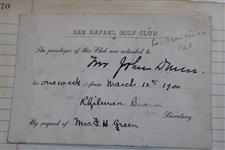 70
SAN RAFAEL GOLF CLUB
San Rafael
Cal
The privileges of this Club are extended to
Mr. John Dunn.
for one week from March 12th 1900
Secretary.
By request of Mrs. F. H. Green